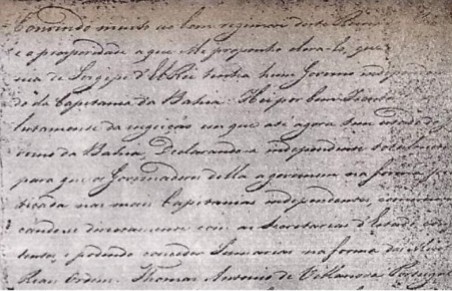 Convindo muito ao bom regimen deste Reino
e a prosperidade a que Me proponho eleva-lo, que
de Sergipe d'El Rei tenha hum Governo independen
da Capitania da Bahia: Hei por bem
da sugeição em que até agora tem estado do
verno da Bahia, Declarando-a independente totalmente
para que os Governadores della a governem na forma pra
ticada nas mais Capitanias independentes, communi
cando-se directamente com as Secretarias d'Estado
e podendo conceder Sesmarias na forma das Minhas
Reaes Ordens. Thomaz Antonio de Villanova Portugal